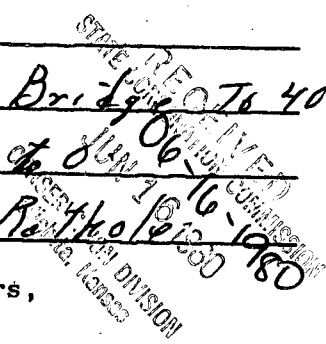 Bridge To 40
to 0
Rathole
rs,
RECEIVED
STATE CORPORATION COMMISSION
JUN 16 1980
06-16-1980
CONSERVATION DIVISION
Wichita, Kansas